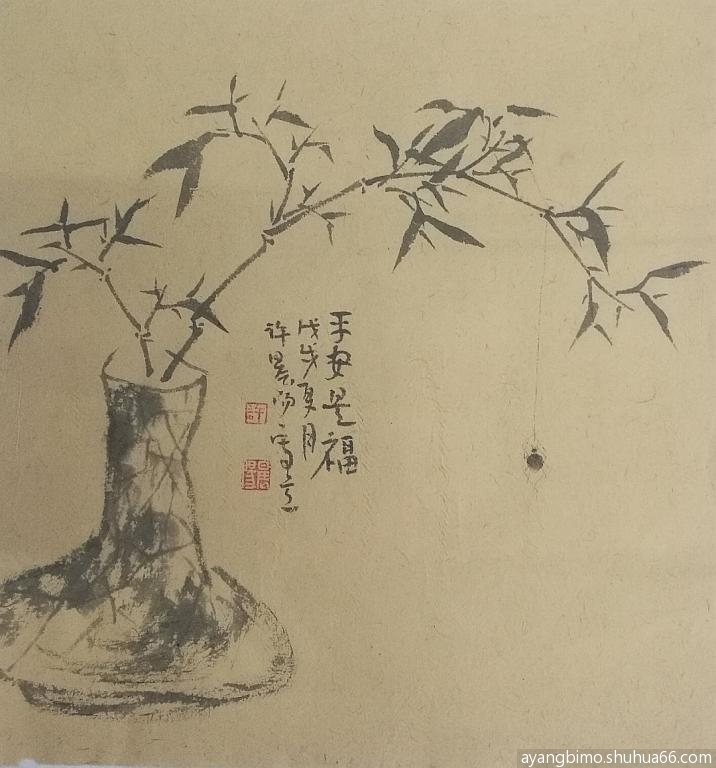 平安是福
戊戌夏月
许晨阳写意
许
晨阳
ayangbimo.shuhua66.com